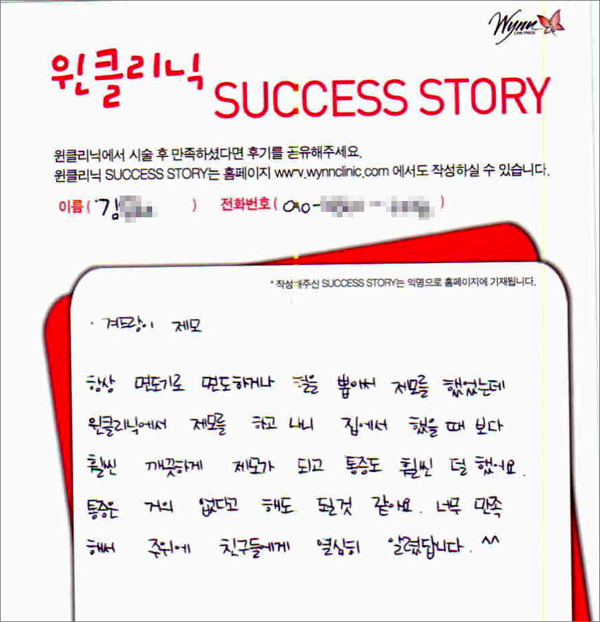 Wynn
윈클리닉
SUCCESS STORY
윈클리닉에서 시술 후 만족하셨다면 후기를 공유해주세요.
윈클리닉 SUCCESS STORY는 홈페이지 www.wynnclinic.com 에서도 작성하실 수 있습니다.
이름 ( 김 ) 전화번호 ( 010- - )
* 작성해주신 SUCCESS STORY는 익명으로 홈페이지에 기재됩니다.
· 겨드랑이 제모
항상 면도기로 면도하거나 털을 뽑아서 제모를 했었는데
윈클리닉에서 제모를 하고 나니 집에서 했을 때 보다
훨씬 깨끗하게 제모가 되고 통증도 훨씬 덜 했어요.
통증은 거의 없다고 해도 될것 같아요. 너무 만족
해서 주위에 친구들에게 열심히 알렸답니다. ^^